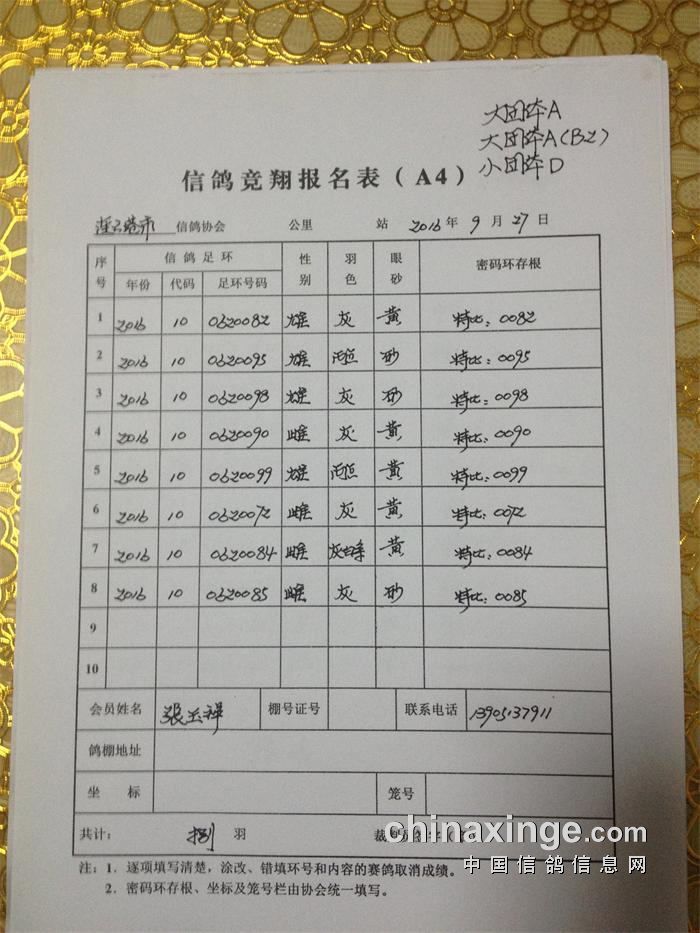 大团体A
大团体A(B2)
小团体D
信鸽竞翔报名表(A4)
连云港市 信鸽协会 公里 站 2016年 9月 27日
序号 信鸽足环 性别 羽色 眼砂 密码环存根
年份 代码 足环号码
1 2016 10 0620082 雄 灰 黄 特比:0082
2 2016 10 0620095 雄 雨点 砂 特比:0095
3 2016 10 0620098 雄 灰 砂 特比:0098
4 2016 10 0620090 雌 灰 黄 特比:0090
5 2016 10 0620099 雄 雨点 黄 特比:0099
6 2016 10 0620072 雌 灰 黄 特比:0072
7 2016 10 0620084 雌 灰白条 黄 特比:0084
8 2016 10 0620085 雌 灰 砂 特比:0085
9
10
会员姓名 張玉祥 棚号证号 联系电话 13905137911
鸽棚地址
坐标 笼号
共计: 捌 羽 裁
chinaxinge.com
中国信鸽信息网
注:1.逐项填写清楚,涂改、错填环号和内容的赛鸽取消成绩。
2.密码环存根、坐标及笼号栏由协会统一填写。